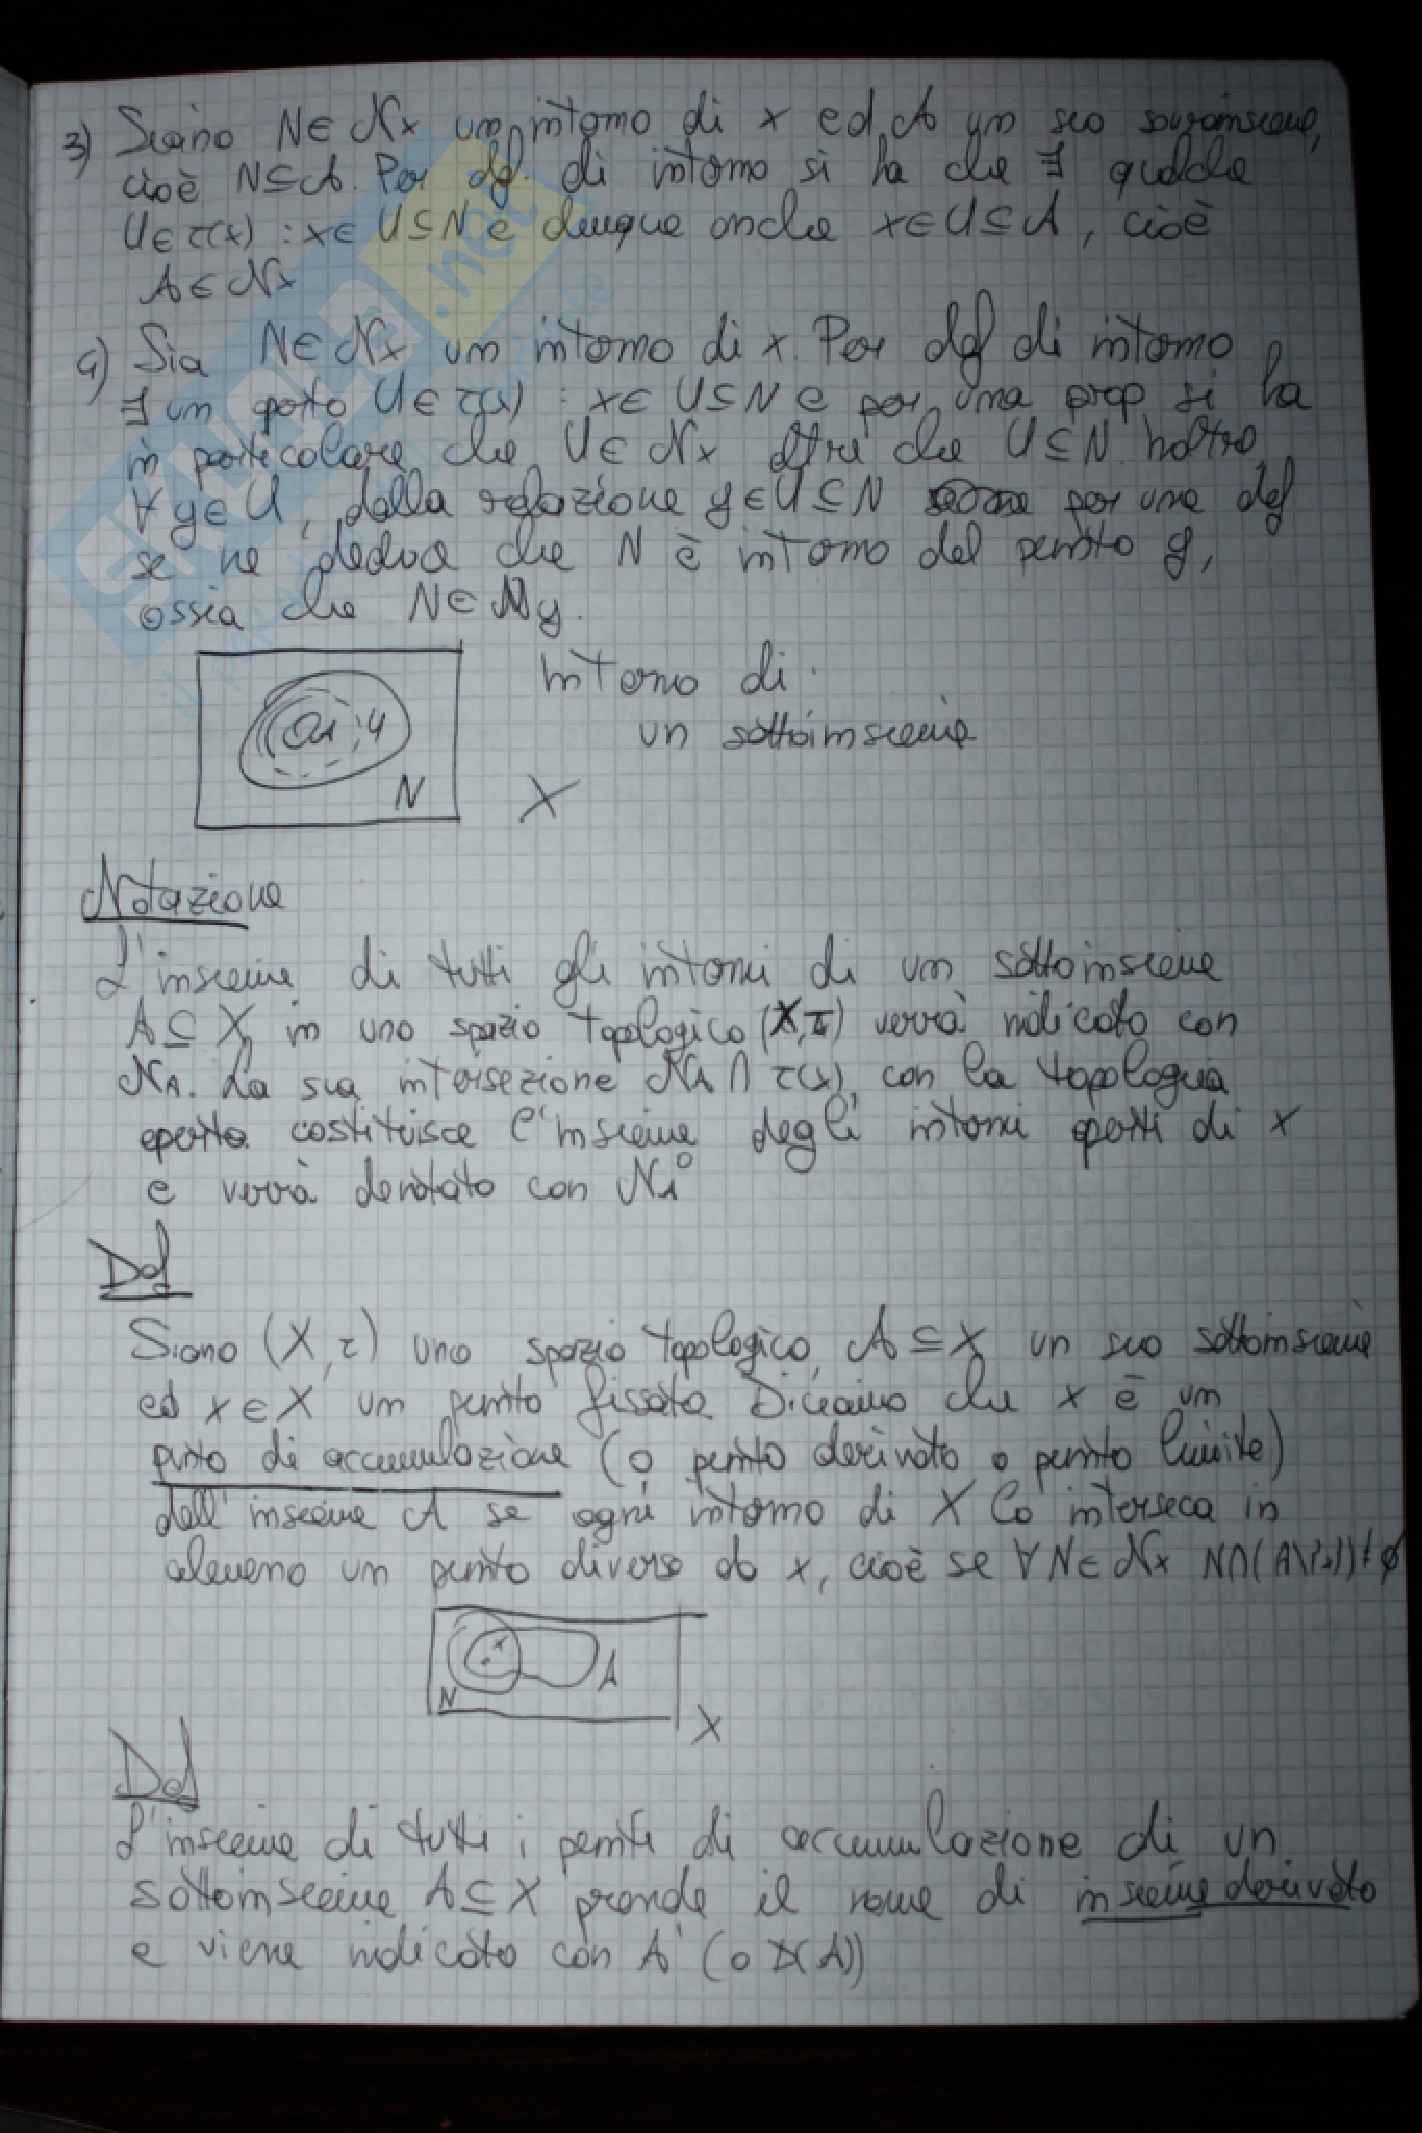 3) Siano N∈𝒩x un intorno di x ed A un suo sovrainsieme,
cioè N⊆A. Per def. di intorno si ha che ∃ qualche
U∈τ(x) : x∈U⊆N e dunque anche x∈U⊆A, cioè
A∈𝒩x
4) Sia N∈𝒩x un intorno di x. Per def di intorno
∃ un aperto U∈τ(x) : x∈U⊆N e per una prop si ha
in particolare che U∈𝒩x oltre che U⊆N. Inoltre
∀ y∈U, dalla relazione y∈U⊆N per una def
se ne deduce che N è intorno del punto y,
ossia che N∈𝒩y.
Intorno di
un sottoinsieme
N
X
Notazione
L'insieme di tutti gli intorni di un sottoinsieme
A⊆X, in uno spazio topologico (X,τ) verrà indicato con
𝒩A. La sua intersezione 𝒩A∩τ(x) con la topologia
aperta costituisce l'insieme degli intorni aperti di x
e verrà denotato con 𝒩A°
Def
Siano (X,τ) uno spazio topologico, A⊆X un suo sottoinsieme
ed x∈X un punto fissato. Diciamo che x è un
punto di accumulazione (o punto derivato o punto limite)
dell'insieme A se ogni intorno di X lo interseca in
almeno un punto diverso da x, cioè se ∀N∈𝒩x N∩(A\{x})≠∅
x
A
N
X
Def
L'insieme di tutti i punti di accumulazione di un
sottoinsieme A⊆X prende il nome di insieme derivato
e viene indicato con A' (o D(A))